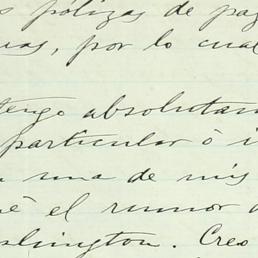 pólizas de pag
uas, por lo cual
tengo absolutam
particular ó i
una de mis
é el rumor d
ashington. Creo